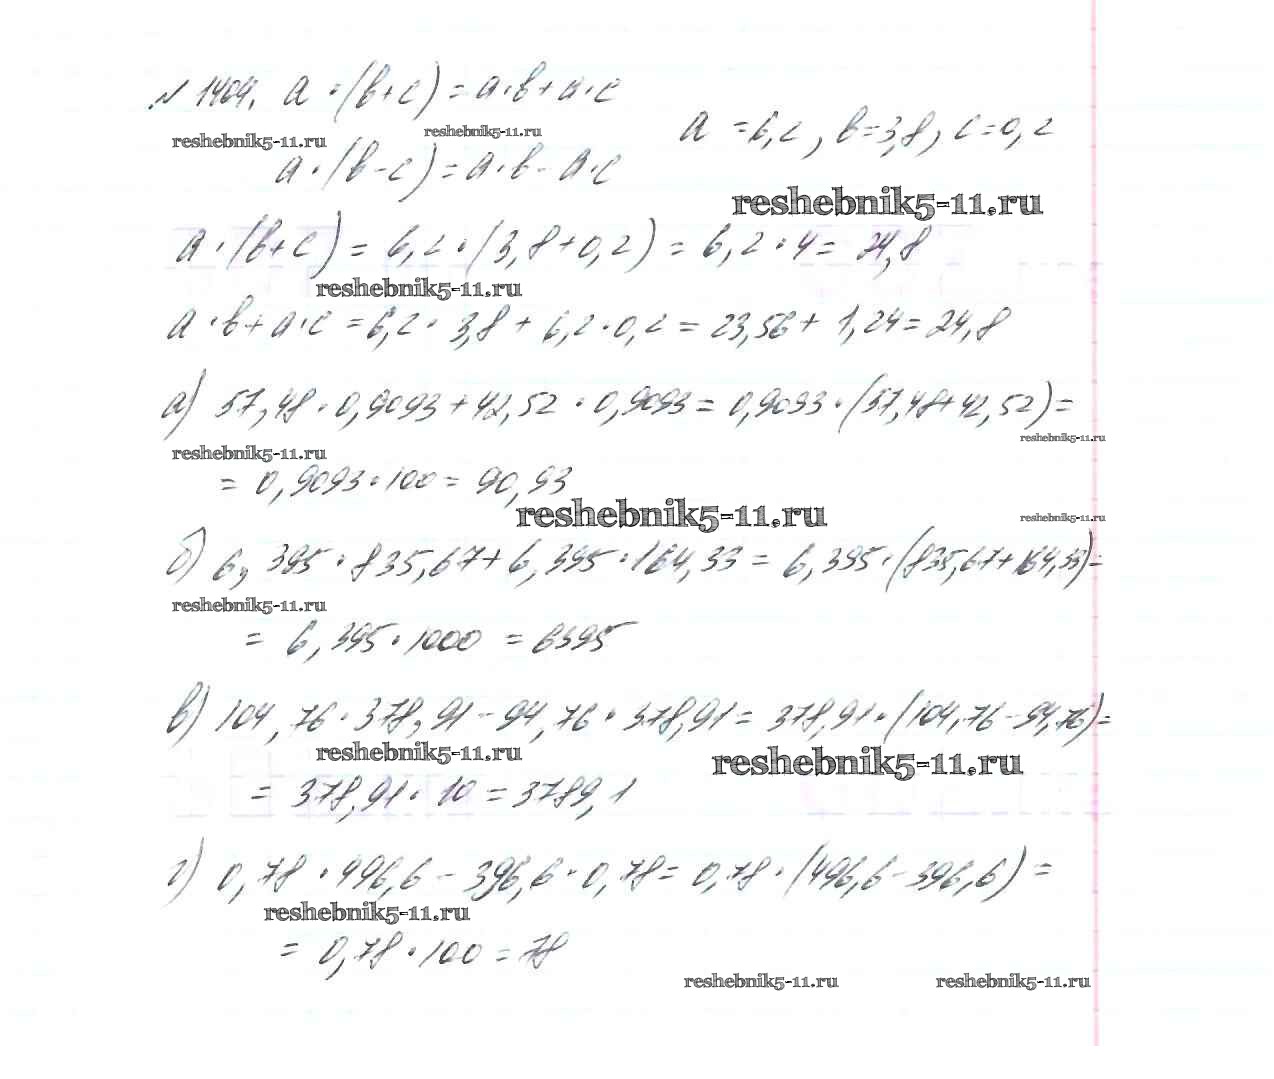 № 1404. a · (b+c) = a·b + a·c
reshebnik5-11.ru reshebnik5-11.ru
a = 6,2, b = 3,8, c = 0,2
a · (b - c) = a·b - a·c
reshebnik5-11.ru
a · (b+c) = 6,2 · (3,8 + 0,2) = 6,2 · 4 = 24,8
reshebnik5-11.ru
a · b + a · c = 6,2 · 3,8 + 6,2 · 0,2 = 23,56 + 1,24 = 24,8
а) 57,48 · 0,9093 + 42,52 · 0,9093 = 0,9093 · (57,48 + 42,52) =
reshebnik5-11.ru reshebnik5-11.ru
= 0,9093 · 100 = 90,93
reshebnik5-11.ru reshebnik5-11.ru
б) 6,395 · 835,67 + 6,395 · 164,33 = 6,395 · (835,67 + 164,33) =
reshebnik5-11.ru
= 6,395 · 1000 = 6395
в) 104,76 · 378,91 - 94,76 · 378,91 = 378,91 · (104,76 - 94,76) =
reshebnik5-11.ru reshebnik5-11.ru
= 378,91 · 10 = 3789,1
г) 0,78 · 496,6 - 396,6 · 0,78 = 0,78 · (496,6 - 396,6) =
reshebnik5-11.ru
= 0,78 · 100 = 78
reshebnik5-11.ru reshebnik5-11.ru